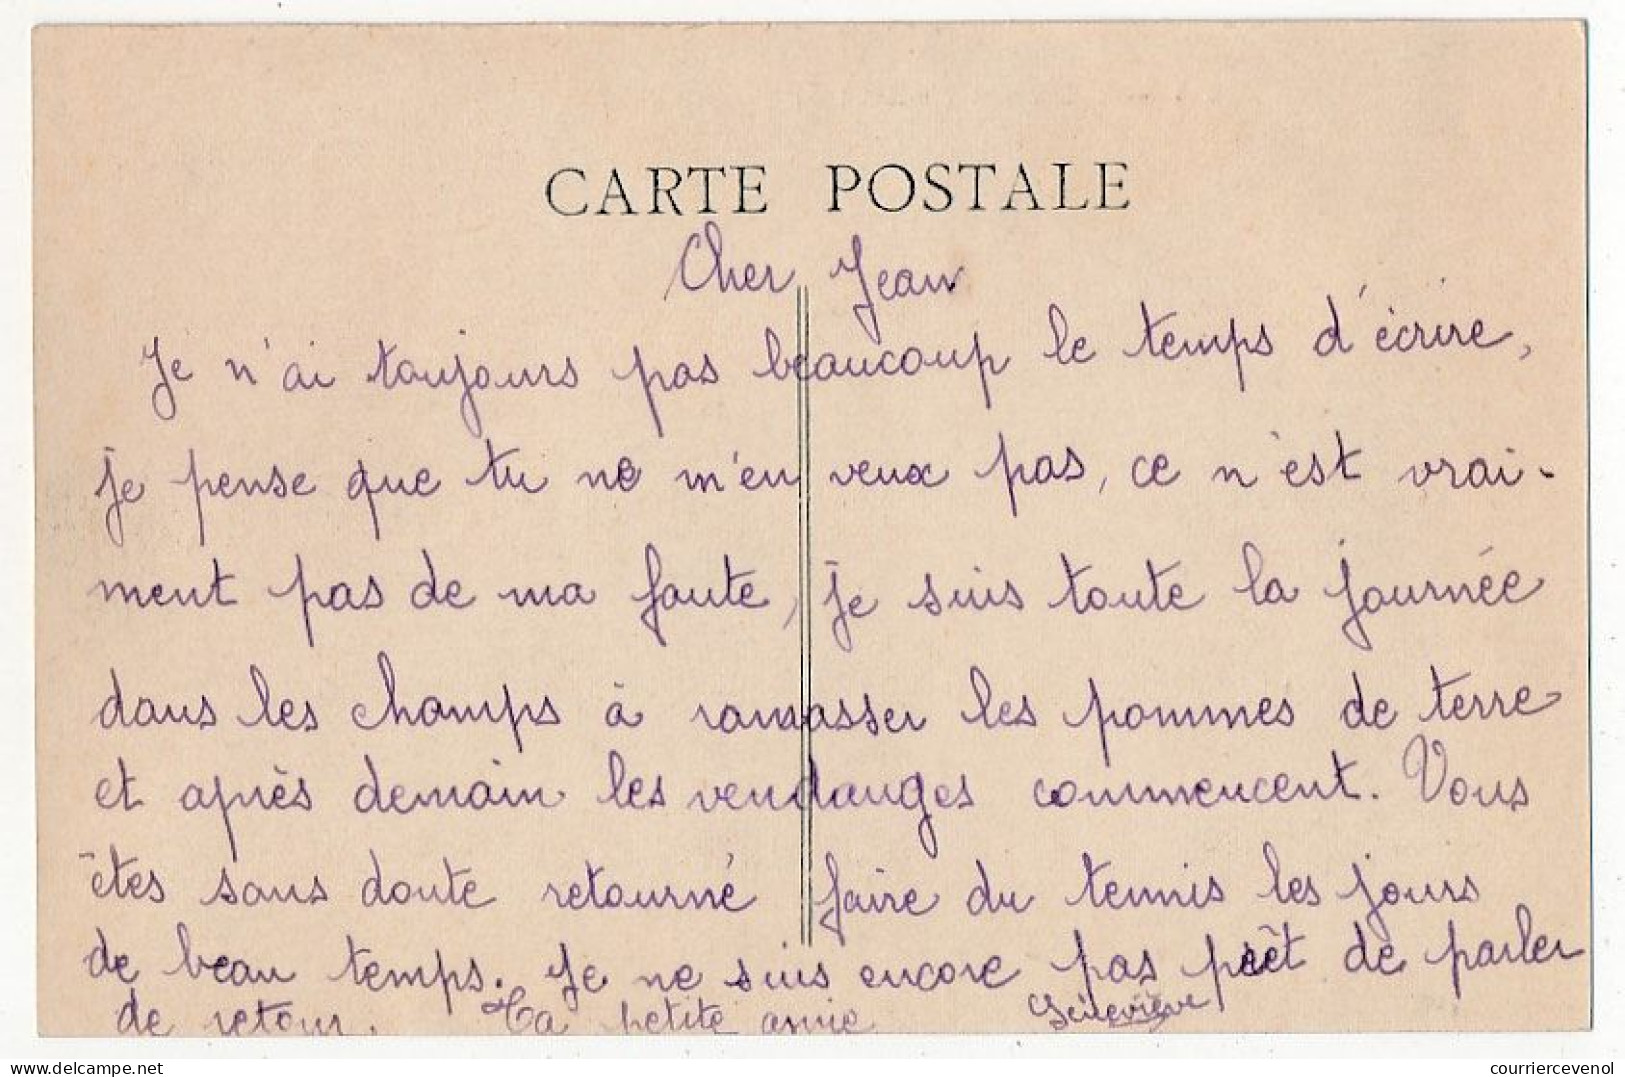 CARTE POSTALE
Cher Jean
Je n'ai toujours pas beaucoup le temps d'écrire,
je pense que tu ne m'en veux pas, ce n'est vrai-
ment pas de ma faute, je suis toute la journée
dans les champs à ramasser les pommes de terre
et après demain les vendanges commencent. Vous
êtes sans doute retourné faire du tennis les jours
de beau temps. Je ne suis encore pas prêt de parler
de retour. Ta petite amie Geneviève
www.delcampe.net
courriercevenol